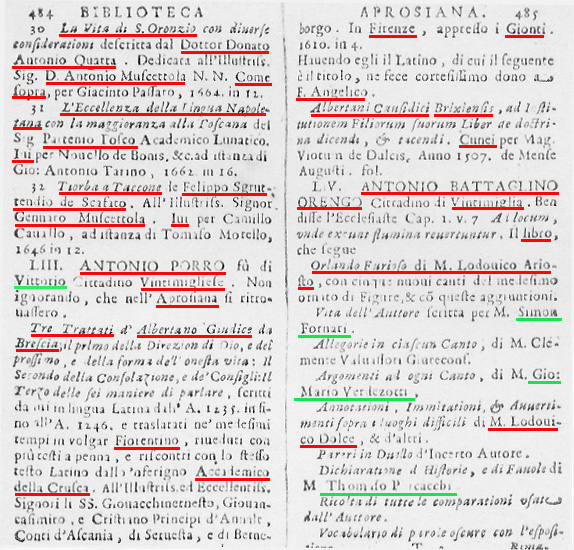 484 BIBLIOTECA
30 La Vita di S. Oronzio con diuerse
considerationi descritta dal Dottor Donato
Antonio Quatta. Dedicata all'Illustriss.
Sig. D. Antonio Muscettola N. N. Come
sopra, per Giacinto Passaro, 1664. in 12.
31 L'Eccellenza della lingua Napole-
tana con la maggioranza alla Toscana del
Sig. Partenio Tosco Academico Lunatico.
Iui per Nouello de Bonis, &c. ad istanza di
Gio: Antonio Tarino, 1662. in 16.
32 Tiorba a Taccone de Felippo Sgrut-
tendio de Scafato. All'Illustriss. Signor
Gennaro Muscettola. Iui per Camillo
Cauallo, ad istanza di Tomaso Morello,
1646 in 12.
LIII. ANTONIO PORRO fù di
Vittorio Cittadino Vintimigliese. Non
ignorando, che nell'Aprosiana si ritro-
uassero.
Tre Trattati d'Albertano Giudice da
Brescia; il primo della Direzion di Dio, e del
prossimo, e della forma dell'onesta vita: Il
Secondo della Consolazione, e de' Consigli: Il
Terzo delle sei maniere di parlare, scritti
da lui in lingua Latina dall'A. 1235. in si-
no all'A. 1246. e traslatati ne' medesimi
tempi in volgar Fiorentino, riueduti con
più testi a penna, e riscontri con lo stesso
testo Latino dallo 'nferigno Accademico
della Crusca. All'Illustriss. ed Eccellentiss.
Signori li SS. Giouacchinernesto, Giouan-
casimiro, e Cristiano Principi d'Analt,
Conti d'Ascania, di Seruesta, e di Berne-
APROSIANA. 485
borgo. In Firenze, appresso i Gionti.
1610. in 4.
Hauendo egli il Latino, di cui il seguente
è il titolo, ne fece cortesissimo dono a
F. Angelico.
Albertani Causidici Brixiensis, ad Insti-
tutionem Filiorum suorum Liber de doctri-
na dicendi, & tacendi. Cunei per Mag.
Viotum de Dulcis, Anno 1507. de Mense
Augusti. fol.
LV. ANTONIO BATTAGLINO
ORENGO Cittadino di Vintimiglia. Ben
disse l'Ecclesiaste Cap. 1. v. 7 Ad locum,
unde exeunt flumina reuertuntur. Il libro,
che segue
Orlando Furioso di M. Lodouico Ario-
sto, con cinque nuoui canti del medesimo
ornato di Figure, & cõ queste aggiuntioni.
Vita dell'Auttore scritta per M. Simon
Fornari.
Allegorie in ciascun Canto, di M. Clè-
mente Valuassori Giureconf.
Argomenti ad ogni Canto, di M. Gio:
Mario Verdezotti,
Annotationi, Immitationi, & Auuerti-
menti sopra i luoghi difficili di M. Lodoui-
co Dolce, & d'altri.
Pareri in Duello d'Incerto Autore.
Dichiaratione d Historie, e di Fauole di
M Thomaso Porcacchi
Ricolta di tutte le comparationi vsate
dall'Auttore.
Vocabolario di parole oscure con l'esposi-
T 2 Rima-